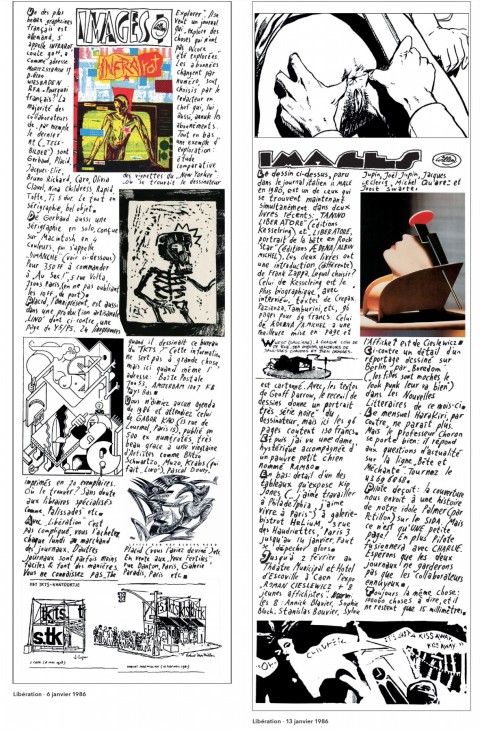 IMAGES
Un des plus
beaux graphzines
français est
allemand, s'
appelle INFRAROT
coute 50FF, a
comme adresse
WIESBADEN
RFA. Pourquoi
français? La
majorité des
collaborateurs
de, par exemple
le dernier
n° ("TELE-
BILDER") sont
Gerbaud, Placid,
Jacques-Elie,
Bruno Richard, Caro, Olivia
Clavel, Kiki Childress, Rapid
Tofte, Ti 5 dur. Le tout en
sérigraphie, bel objet.
De Gerbaud aussi une
sérigraphie en solo, conçue
sur Macintosh en 4
couleurs, qui s'appelle
DIMANCHE (voir ci-dessous)
Pour 350 FF à commander
à "Au Sec!" 5 rue Volta
75003 Paris, (en ne pas oubliant
les 20 FF de port)
Placid, l'omniprésent, est aussi
dans une production artisanale
"LINO" dont ci-contre, une
page de Y5/P5. 20 grammes
INFRAROT
Explorer". Il en
veut un journal
qui explore des
choses qui n'ont
pas encore
été explorées.
Les avancées
changent par
numéro, sont
choisis par le
rédacteur en
chef qui, lui
aussi, annule les
abonnements.
Tout en bas,
une exemple d'
exploration:
étude
comparative
des vignettes du "New Yorker":
Où se trouvait le dessinateur
quand il dessinait ce bureau
du TKTS? Cette information
ne sert pas à grand chose,
mais ici quand même l'
adresse: Boîte Postale
70053, AMSTERDAM 1007 FB
Pays Bas
Vous n'aimez aucun agenda
de 1986 et attendez celui
de GABOR KAO (15 rue de
Lourmel, Paris 15), publié en
500 ex numérotés, très
beau grâce à une vingtaine
d'Artistes comme Butch
Schwartzo, Muzo, Krabs (qui
fait "Lord"), Pascal Doury,
imprimés en 20 exemplaires.
Où le trouver? Sans doute
aux libraires spécialisés
comme, Palissades etc
Avec Libération c'est
pas compliqué, vous l'achetez
chaque lundi au marchand
des journaux. D'autres
journaux sont parfois moins
faciles & font des manières.
Vous ne connaissez pas, The
Placid (vous l'aviez deviné) etc
En vente aux "Yeux Fertiles"
rue Danton, Paris, Galerie
Paradis, Paris etc.
HET TKTS-KANTOORTJE
tkts
stk
Libération - 6 janvier 1986
IMAGES
Ce dessin ci-dessus, paru
dans le journal italien il MALE
en 1980, est un de ceux qui
se trouvent maintenant
simultanément dans deux
livres récents: "TANINO
LIBERATORE" (éditions
Kesselring) et "LIBERATORE,
portrait de la bête en Rock
Star" (éditions AEDENA/ALBIN
MICHEL). Les deux livres ont
une introduction (différente)
de Frank Zappa. Lequel choisir?
Celui de Kesselring est le
plus biographique, avec
interview, textes de Crepax,
Pazienza, Tamburini, etc, 96
pages pour 69 francs. Celui
de AEDENA/A. MICHEL a une
meilleure mise en page et
est cartonné. Avec, les textes
de Geoff Darrow, le recueil de
dessins donne un portrait
"très série noire" du
dessinateur, mais ici les 96
pages coûtent 120 francs.
Et puis j'ai vu une dame,
hystérique accompagnée d'
un pauvre petit chien
nommé RAMBO
En bas: détail d'un des
tableaux qu'expose Kip
Jones ("j'aime travailler
à Philadelphia, j'aime
vivre à Paris") à galerie-
bistrot HeLiuM, 3 rue
des Haudriettes, Paris 3
jusqu'au 14 janvier. Faut
se dépêcher alors
Jusqu'à 2 février au
Théâtre Municipal et Hotel
d'Escoville à Caen l'expo
ROMAN CIESLEWICZ + 8
jeunes affichistes:
les 8: Annick Blavier, Sophie
Boch, Stanilas Bouvier, Sylvie
Jupin, Joël Jupin, Jacques
Leclercq, Michel Quarez et
Joost Swarte.
l'Affiche? est de Cieslewicz
Ci-contre un détail d'un
reportage dessiné sur
Berlin par "Boredom"
(les filles sont moches le
look punk leur va bien")
dans Les Nouvelles
Littéraires de ce mois-ci
Le mensuel Harakiri, par
contre, ne paraît plus.
Mais le Professeur Choron
se porte bien: il répond
aux questions d'actualité
sur la ligne "Bête et
Méchante". Tournez le
Pilote déçoit: la couverture
nous envoit à une histoire
de notre idole Palmer (par
Pétillon) sur la SIDA. Mais
ce n'est qu'UNE PETITE
page! En plus Pilote
fusionnera avec CHARLIE.
Espérons que les deux
journaux ne garderons
pas que les collaborateurs
ennuyeux
Toujours la même chose:
100.000 choses à dire, et il
ne restent que 15 millimètres
IT'S JUST A KISS AWAY,
KISS AWAY
Libération - 13 janvier 1986